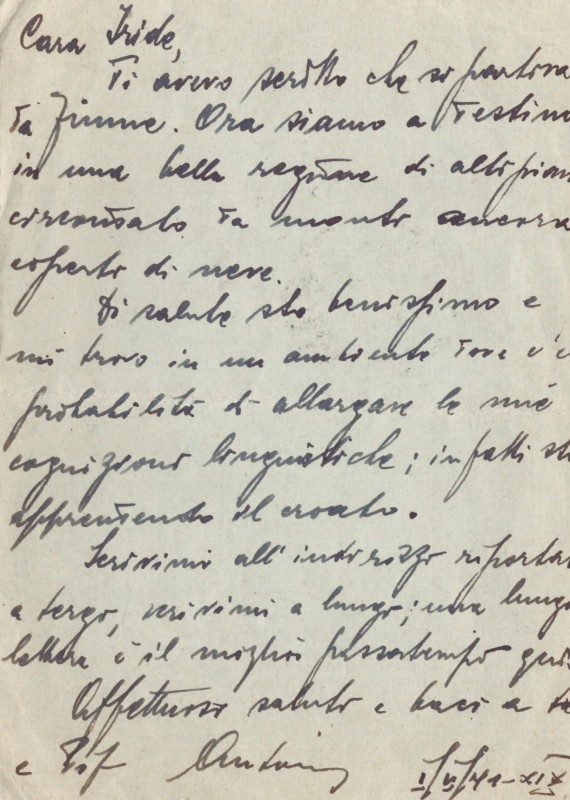 Cara Iride,
Ti avevo scritto che si partiva
da Fiume. Ora siamo a Destino
in una bella regione di altipian
circondato da monti ancora
coperti di neve.
Di salute sto benissimo e
mi trovo in un ambiente dove c'è
probabilità di allargare le mie
cognizioni linguistiche; infatti sto
apprendendo il croato.
Scrivimi all'indirizzo riportat
a tergo, scrivimi a lungo; una lunga
lettera è il miglior passatempo qui
Affettuosi saluti e baci a te
e Pif Antonio I/V/41-XIX